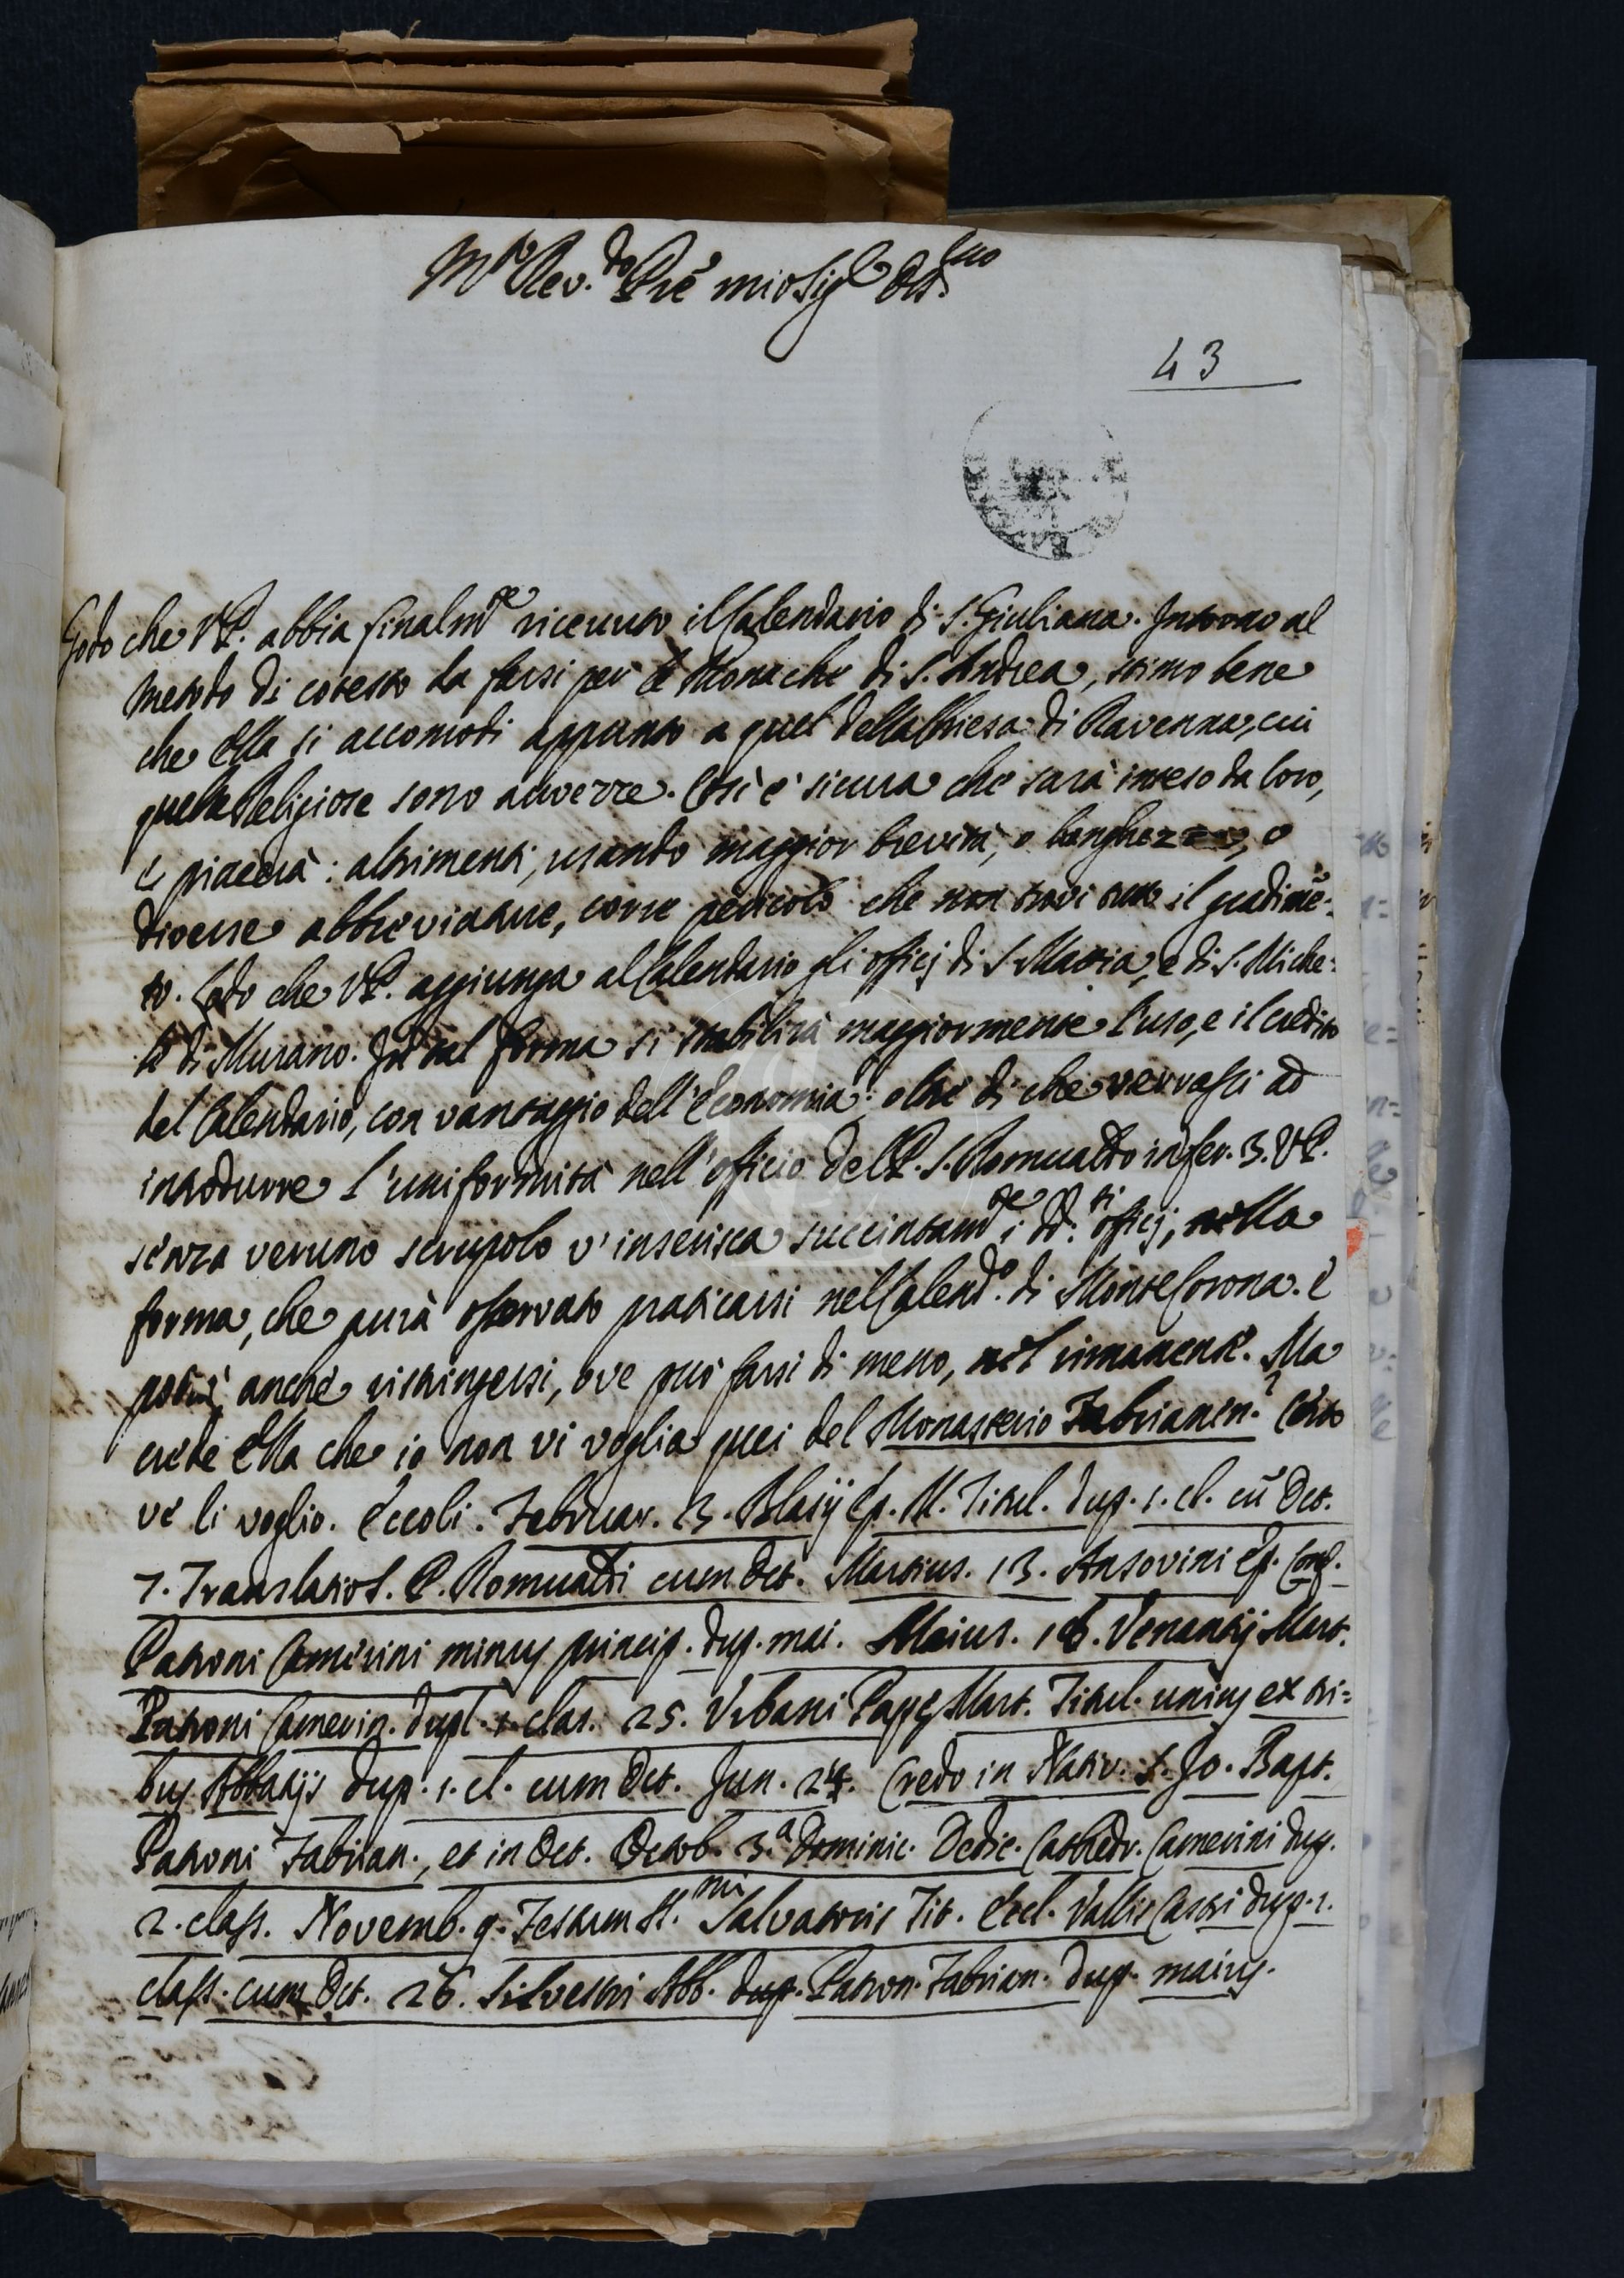 M.to Rev.do P̃re mio Sig.e Oss.mo
43
Godo che V.P. abbia finalm.te riceuuto il Calendario di S. Giuliana. Intorno al
metodo di cotesto da farsi per le Monache di S. Andrea, stimo bene
che ella si accomodi appunto a quel della Chiesa di Ravenna, cui
quelle Religiose sono auuezze. Così è sicura che sarà inteso da loro,
e piacerà: altrimenti, usando maggior brevità, o longhezza, o
diverse abbreviature, corre pericolo che non trovi tutto il gradimẽ=
to. Lodo che V.P. aggiunga al Calendario gli officj di S. Mattia, e di S. Miche=
le di Murano. In tal forma si stabilirà maggiormente l'uso, e il credito
del Calendario, con vantaggio dell'economia: oltre di che verrassi ad
introdurre l'uniformità nell'officio del P. S. Romualdo in fer. 3. V.P.
senza veruno scrupolo v'inserisca succintam.te i dd.ti officj, nella
forma, che aurà osservato praticarsi nel Calend.o di Monte Corona. E
potrà anche ristringersi, ove può farsi di meno, nel rimanente. Ma
crede ella che io non vi voglia quei del Monasterio Fabrianen.? Certo
ve li voglio. Eccoli. Februar. 3. Blasij Ep. M. Titul. dup. 1. cl. cũ Oct.
7. Translatio S. P. Romualdi cum Oct. Martius. 13. Ansovini Ep. Conf.
Patroni Camerini minus princip. dup. mai. Maius. 18. Venantij Mart.
Patroni Camerin. dupl. 1. clas. 25. Urbani Papę Mart. Titul. unius ex tri=
bus Abbatijs dup. 1. cl. cum Oct. Jun. 24. Credo in Nativ. S. Jo. Bapt.
Patroni Fabrian., et in Oct. Octob. 3.a Dominic. Dedic. Cathedr. Camerini dup.
2. class. Novemb. 9. Festum SS.mi Salvatoris Tit. Eccl. Vallis Castri dup. 1.
class. cum Oct. 26. Silvestri Abb. dup. Patron. Fabrian. dup. maius.